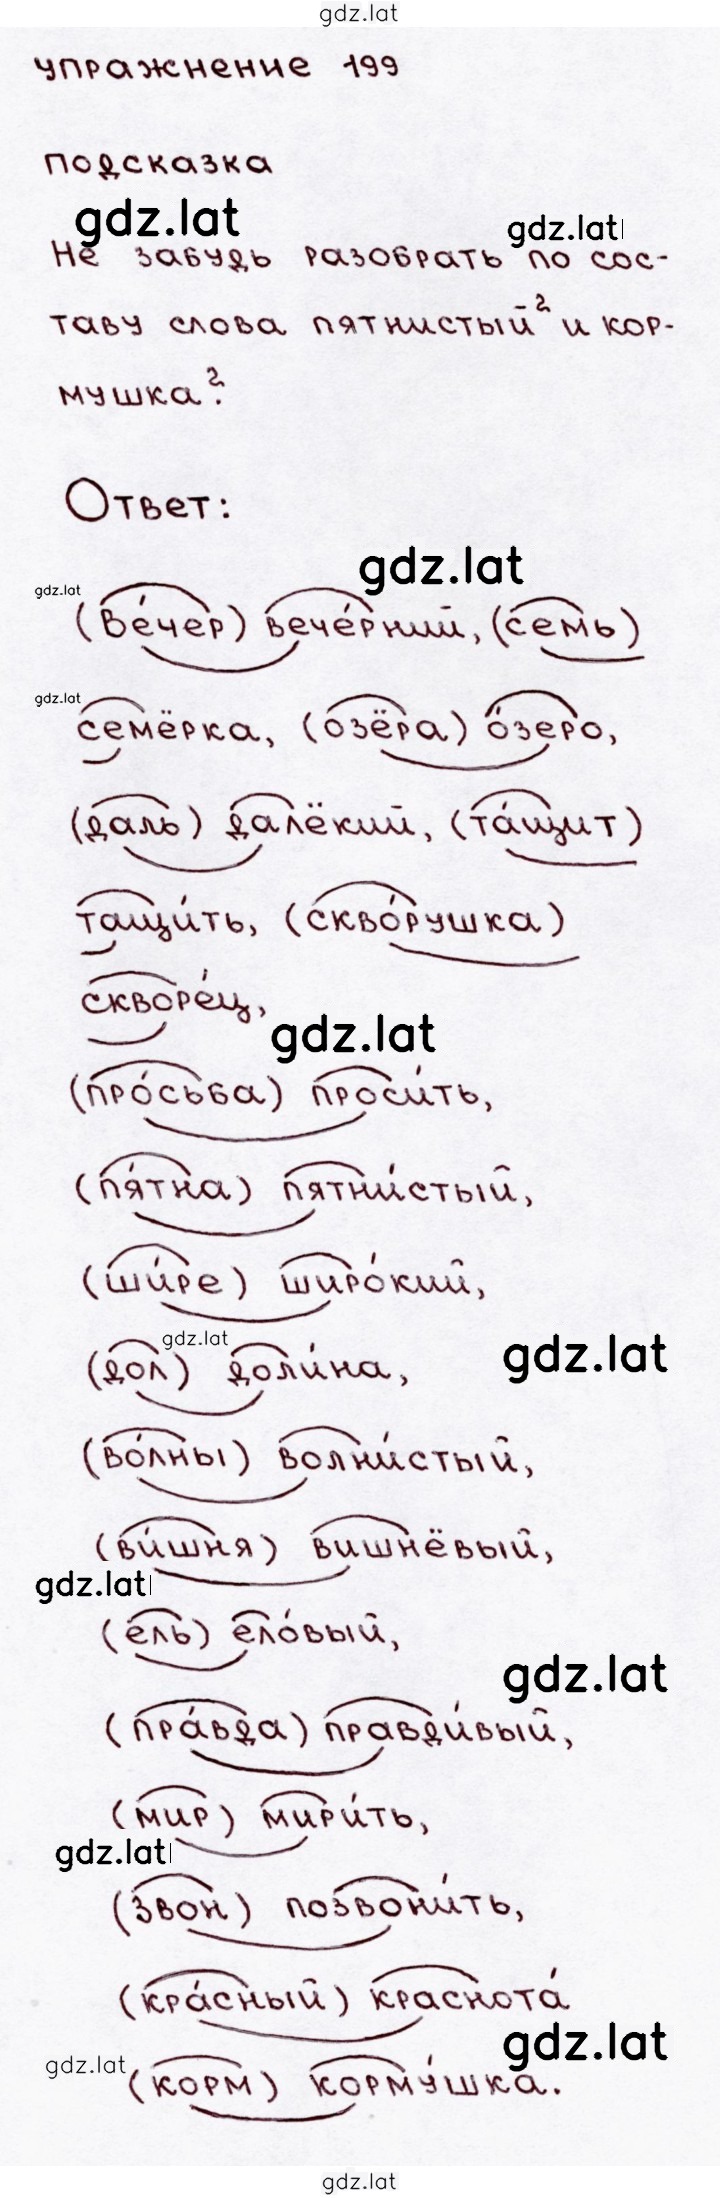 gdz.lat
упражнение 199
подсказка
gdz.lat
gdz.lat
Не забудь разобрать по сос-
таву слова пятнистый² и кор-
мушка².
Ответ:
gdz.lat
gdz.lat
(ве́чер) вече́рний, (семь)
gdz.lat
семёрка, (озёра) о́зеро,
(даль) далёкий, (та́щит)
тащи́ть, (скво́рушка)
скворе́ц,
gdz.lat
(про́сьба) проси́ть,
(пя́тна) пятни́стый,
(ши́ре) широ́кий,
gdz.lat
gdz.lat
(дол) доли́на,
(во́лны) волни́стый,
(ви́шня) вишнёвый,
gdz.lat
(ель) ело́вый,
gdz.lat
(пра́вда) правди́вый,
(мир) мири́ть,
gdz.lat
(звон) позвони́ть,
(кра́сный) краснота́
gdz.lat
gdz.lat
(корм) корму́шка.
gdz.lat